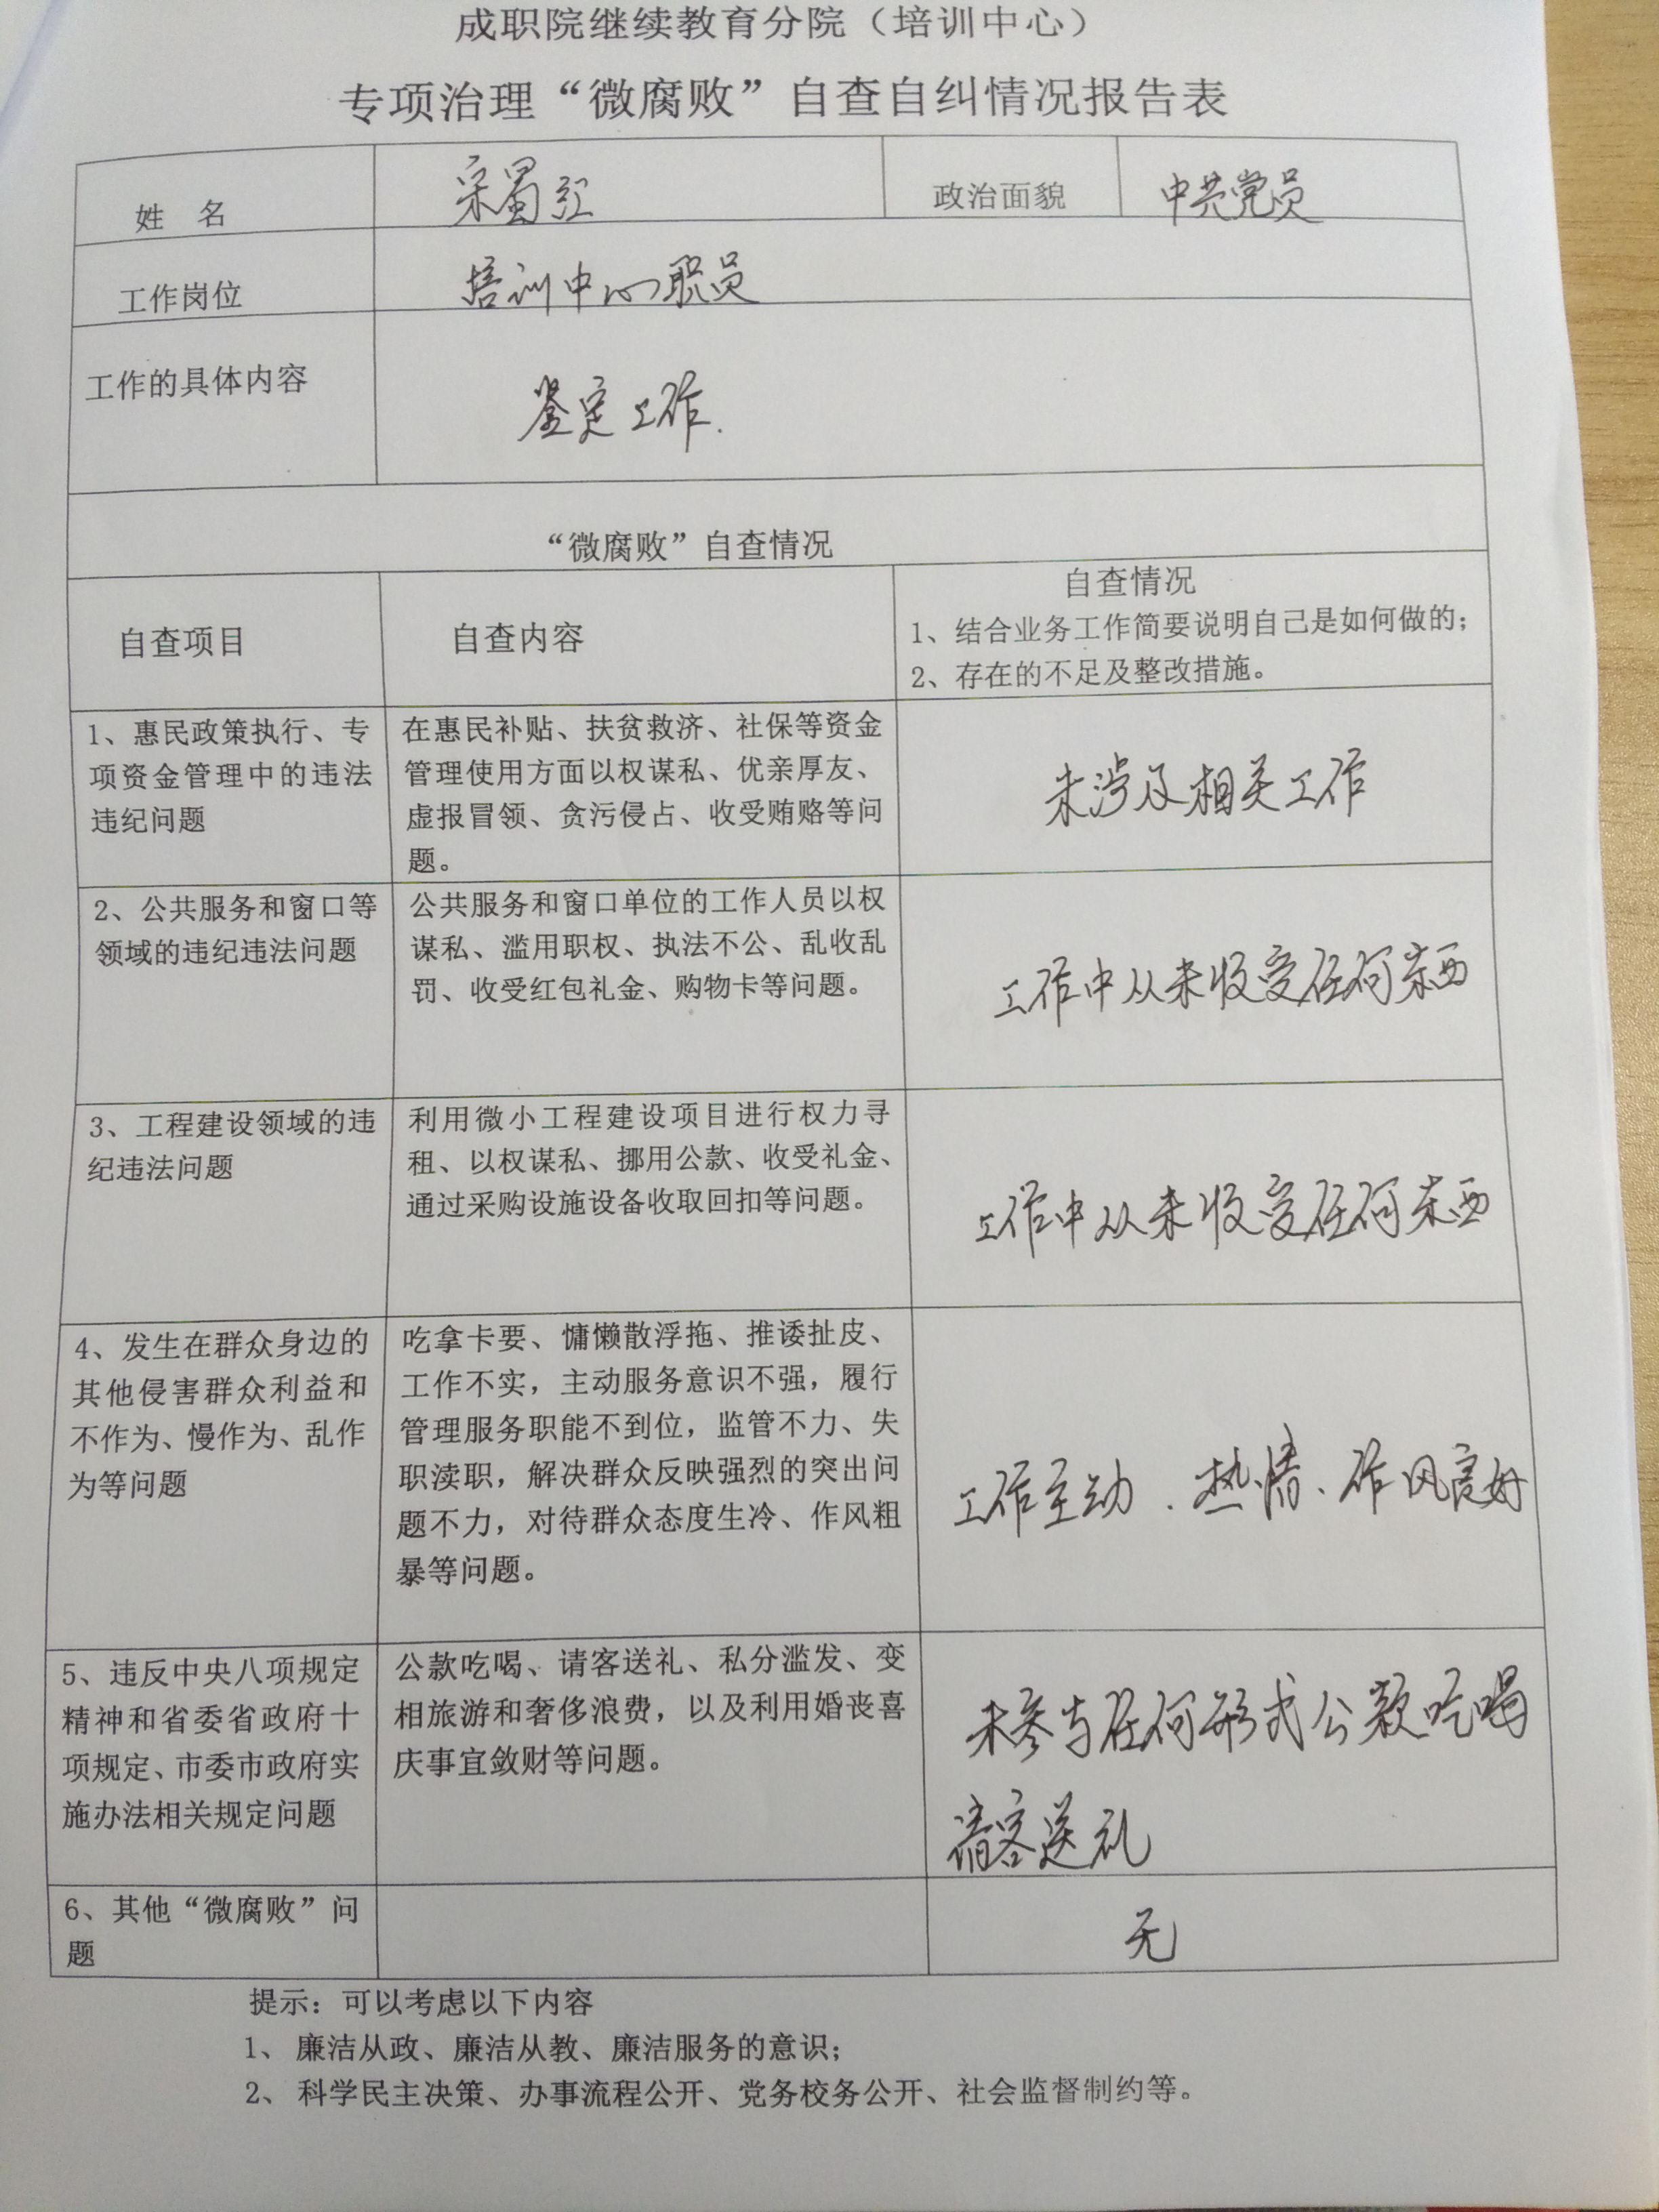 成职院继续教育分院（培训中心）
专项治理“微腐败”自查自纠情况报告表
姓 名
宋蜀红
政治面貌
中共党员
工作岗位
培训中心职员
工作的具体内容
鉴定工作.
“微腐败”自查情况
自查项目
自查内容
自查情况
1、结合业务工作简要说明自己是如何做的；
2、存在的不足及整改措施。
1、惠民政策执行、专
项资金管理中的违法
违纪问题
在惠民补贴、扶贫救济、社保等资金
管理使用方面以权谋私、优亲厚友、
虚报冒领、贪污侵占、收受贿赂等问
题。
未涉及相关工作
2、公共服务和窗口等
领域的违纪违法问题
公共服务和窗口单位的工作人员以权
谋私、滥用职权、执法不公、乱收乱
罚、收受红包礼金、购物卡等问题。
工作中从未收受任何东西
3、工程建设领域的违
纪违法问题
利用微小工程建设项目进行权力寻
租、以权谋私、挪用公款、收受礼金、
通过采购设施设备收取回扣等问题。
工作中从未收受任何东西
4、发生在群众身边的
其他侵害群众利益和
不作为、慢作为、乱作
为等问题
吃拿卡要、慵懒散浮拖、推诿扯皮、
工作不实，主动服务意识不强，履行
管理服务职能不到位，监管不力、失
职渎职，解决群众反映强烈的突出问
题不力，对待群众态度生冷、作风粗
暴等问题。
工作主动、热情、作风良好
5、违反中央八项规定
精神和省委省政府十
项规定、市委市政府实
施办法相关规定问题
公款吃喝、请客送礼、私分滥发、变
相旅游和奢侈浪费，以及利用婚丧喜
庆事宜敛财等问题。
未参与任何形式公款吃喝
请客送礼
6、其他“微腐败”问
题
无
提示：可以考虑以下内容
1、廉洁从政、廉洁从教、廉洁服务的意识；
2、科学民主决策、办事流程公开、党务校务公开、社会监督制约等。